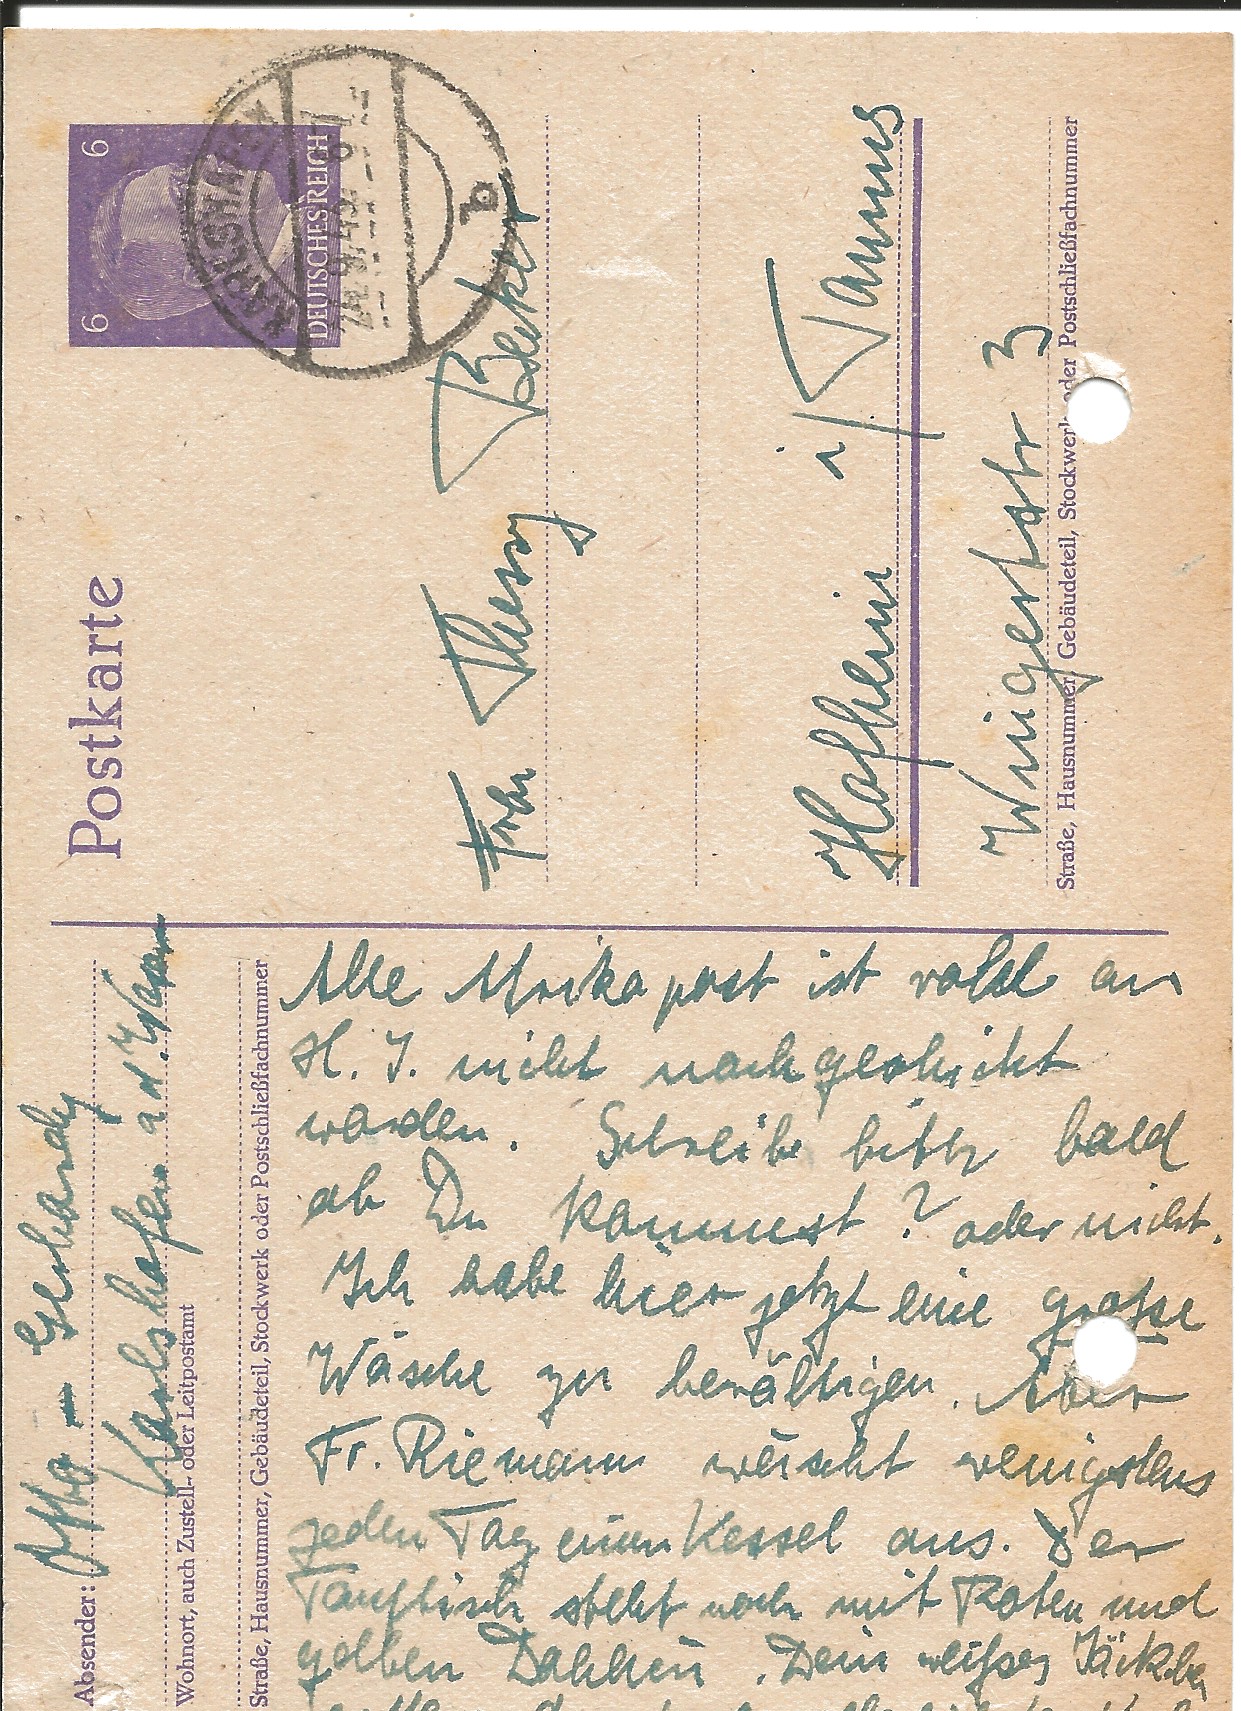 Postkarte
6 6
DEUTSCHES REICH
KARLSHAFEN
b
Frau Thesy Becker
Hofheim i/Taunus
Wingertstr 3
Straße, Hausnummer, Gebäudeteil, Stockwerk oder Postschließfachnummer
Absender: Otto - Gerhardy
Karlshafen a d. Weser
Wohnort, auch Zustell- oder Leitpostamt
Straße, Hausnummer, Gebäudeteil, Stockwerk oder Postschließfachnummer
Alle Afrikapost ist wohl an
H. J. nicht nachgeschickt
worden. Schreibe bitte bald
ob Du kommst? oder nicht.
Ich habe hier jetzt eine große
Wäsche zu bewältigen. Aber
Fr. Riemann wäscht wenigstens
jeden Tag einen Kessel aus. Der
Tauftisch steht noch mit Roten und
gelben Dahlien. Dein weißes Jäckchen